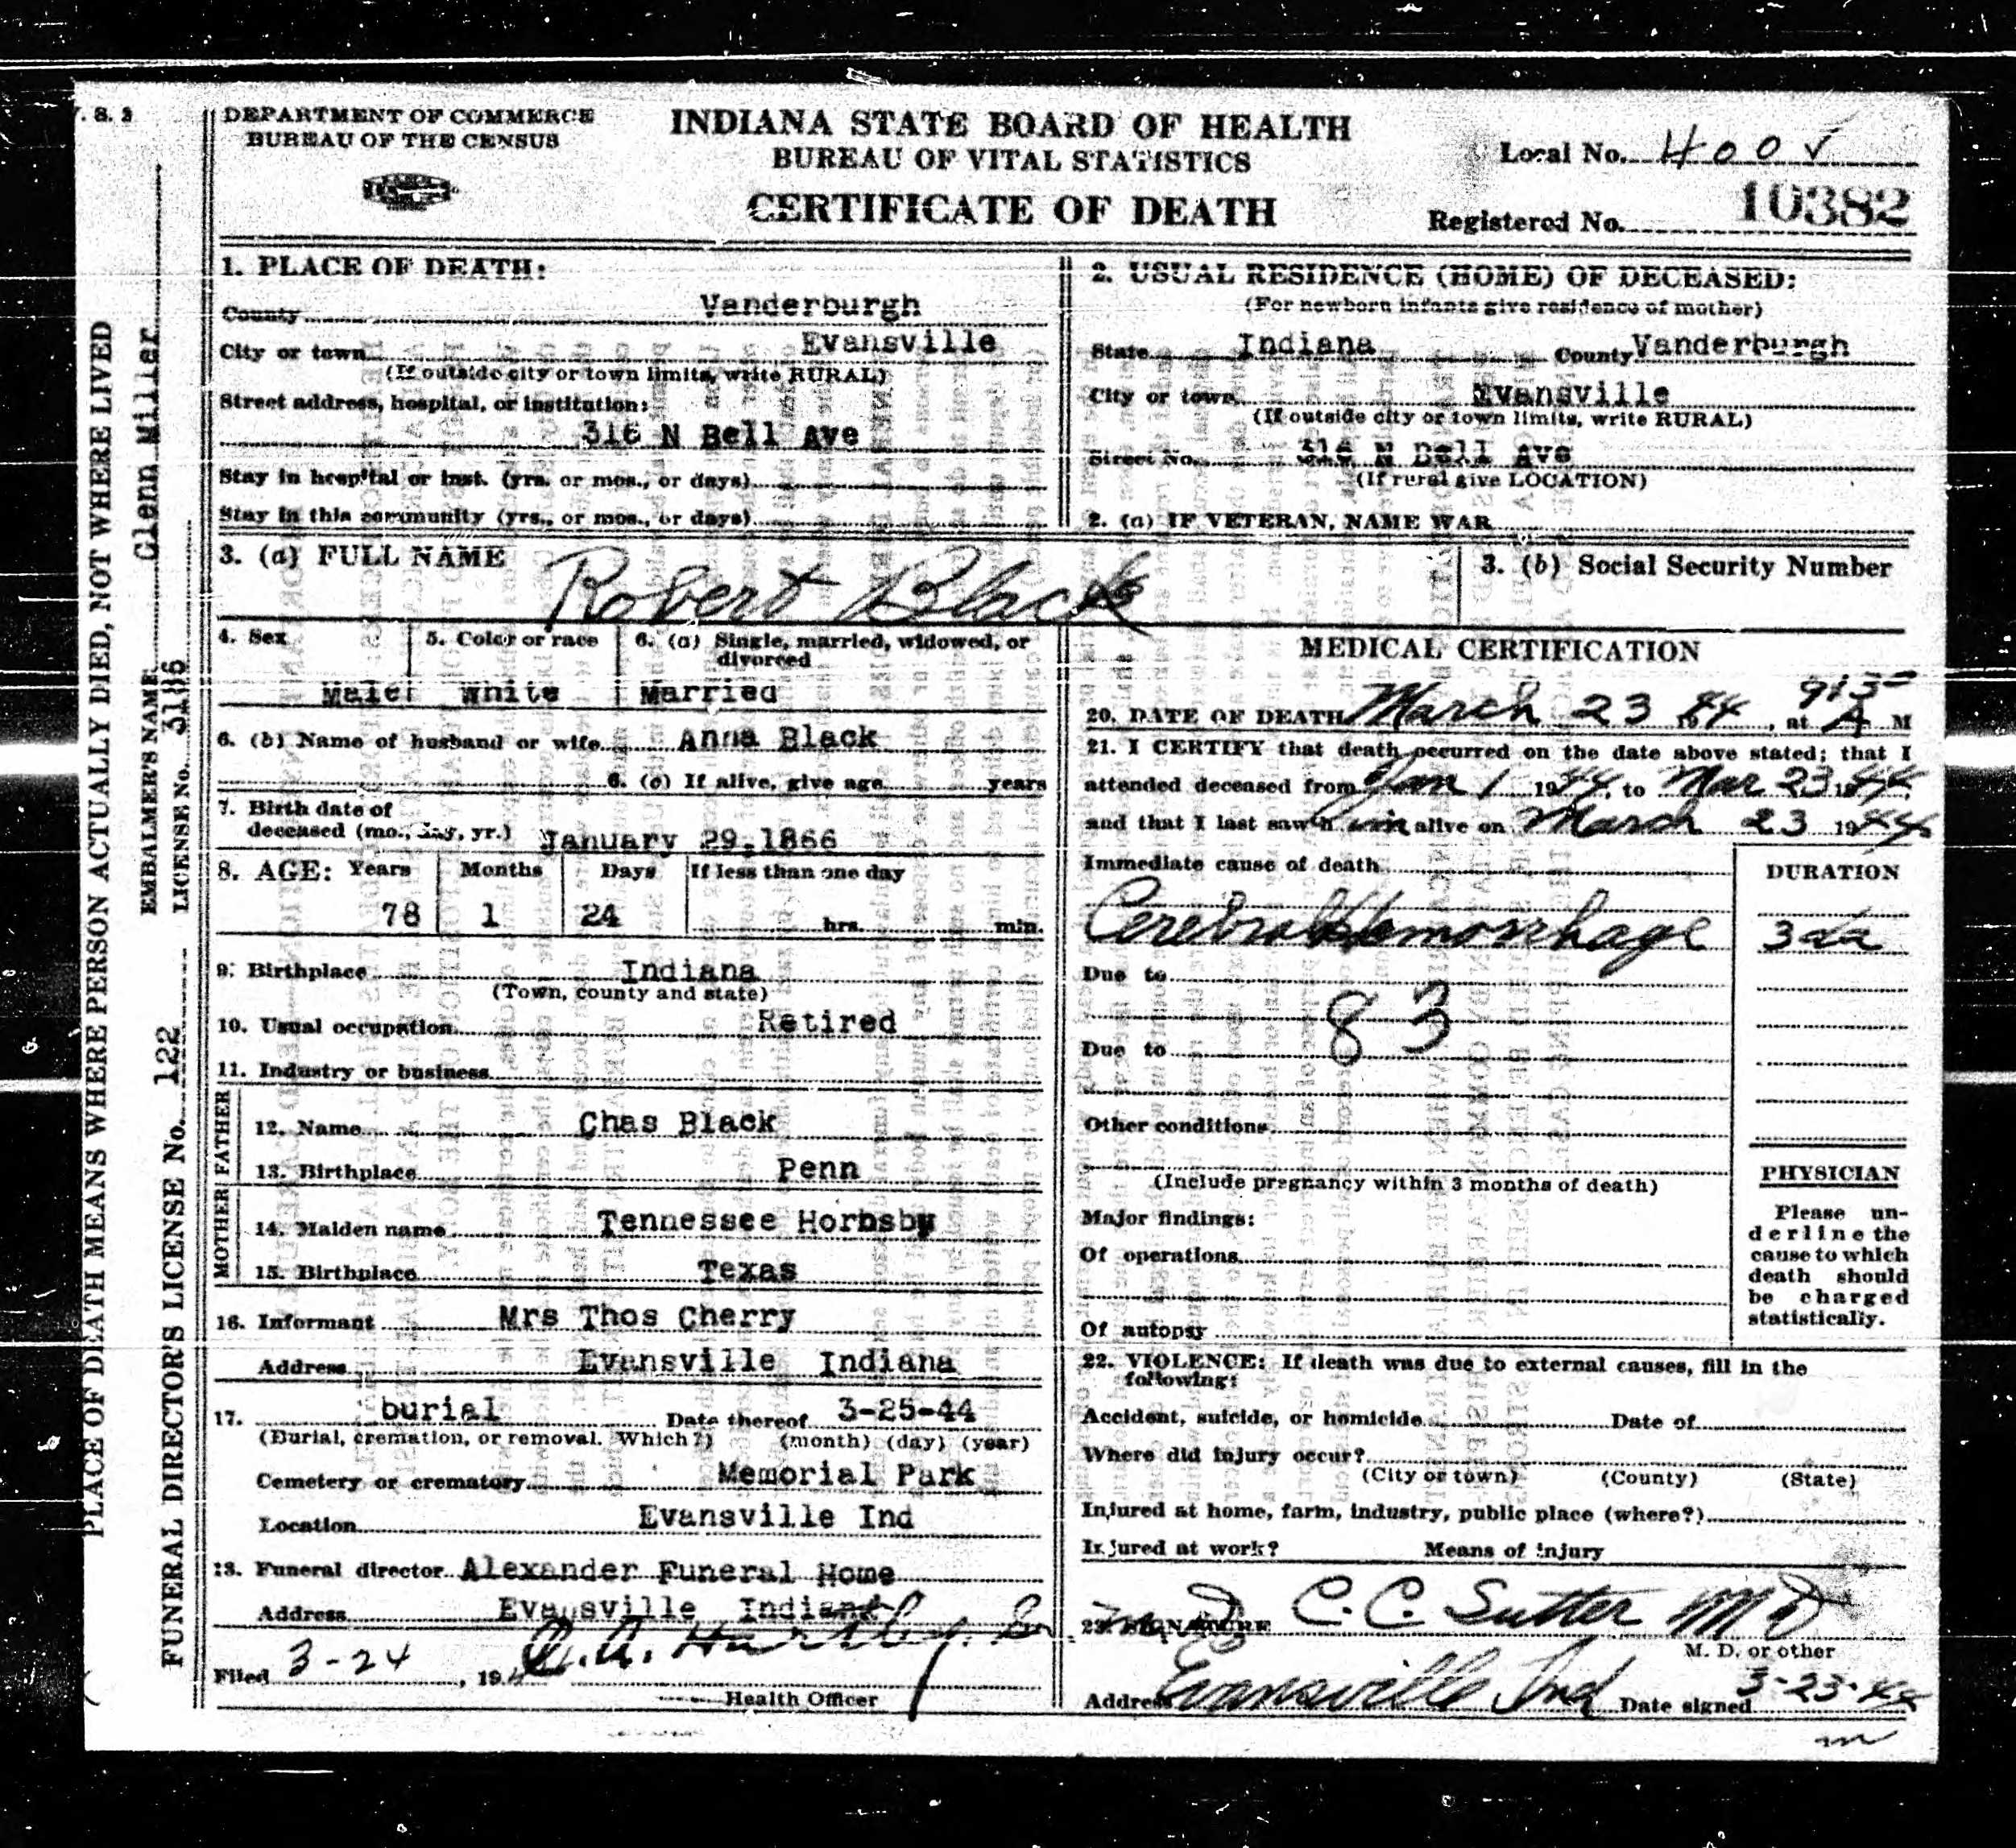 V. S. 2
DEPARTMENT OF COMMERCE
BUREAU OF THE CENSUS
INDIANA STATE BOARD OF HEALTH
BUREAU OF VITAL STATISTICS
CERTIFICATE OF DEATH
Local No. 400 ✓
Registered No. 10382
PLACE OF DEATH MEANS WHERE PERSON ACTUALLY DIED, NOT WHERE LIVED
EMBALMER'S NAME Glenn Miller
LICENSE No. 3186
FUNERAL DIRECTOR'S LICENSE No. 122
1. PLACE OF DEATH:
County Vanderburgh
City or town Evansville
(If outside city or town limits, write RURAL)
Street address, hospital, or institution:
316 N Bell Ave
Stay in hospital or inst. (yrs. or mos., or days)
Stay in this community (yrs., or mos., or days)
2. USUAL RESIDENCE (HOME) OF DECEASED:
(For newborn infants give residence of mother)
State Indiana County Vanderburgh
City or town Evansville
(If outside city or town limits, write RURAL)
Street No. 316 N Bell Ave
(If rural give LOCATION)
2. (a) IF VETERAN, NAME WAR
3. (a) FULL NAME Robert Black
3. (b) Social Security Number
4. Sex Male
5. Color or race White
6. (a) Single, married, widowed, or divorced Married
6. (b) Name of husband or wife Anna Black
6. (c) If alive, give age years
7. Birth date of
deceased (mo., day, yr.) January 29, 1866
8. AGE: Years Months Days If less than one day
78 1 24 hrs. min.
9. Birthplace Indiana
(Town, county and state)
10. Usual occupation Retired
11. Industry or business
FATHER
12. Name Chas Black
13. Birthplace Penn
MOTHER
14. Maiden name Tennessee Hornsby
15. Birthplace Texas
16. Informant Mrs Thos Cherry
Address Evansville Indiana
17. burial Date thereof 3-25-44
(Burial, cremation, or removal. Which?) (month) (day) (year)
Cemetery or crematory Memorial Park
Location Evansville Ind
18. Funeral director Alexander Funeral Home
Address Evansville Indiana
Filed 3-24, 194
Health Officer
MEDICAL CERTIFICATION
20. DATE OF DEATH March 23 1944, at 9:15 A M
21. I CERTIFY that death occurred on the date above stated; that I
attended deceased from Jan 1 1944, to Mar 23 1944,
and that I last saw him alive on March 23 1944
Immediate cause of death
DURATION
Cerebral Hemorrhage 3 da
Due to
83
Due to
Other conditions
(Include pregnancy within 3 months of death)
Major findings:
Of operations
Of autopsy
PHYSICIAN
Please un-
derline the
cause to which
death should
be charged
statistically.
22. VIOLENCE: If death was due to external causes, fill in the
following:
Accident, suicide, or homicide Date of
Where did injury occur?
(City or town) (County) (State)
Injured at home, farm, industry, public place (where?)
Injured at work? Means of injury
23. SIGNATURE C. C. Sutter MD
M. D. or other
Address Evansville Ind Date signed 3-23-44